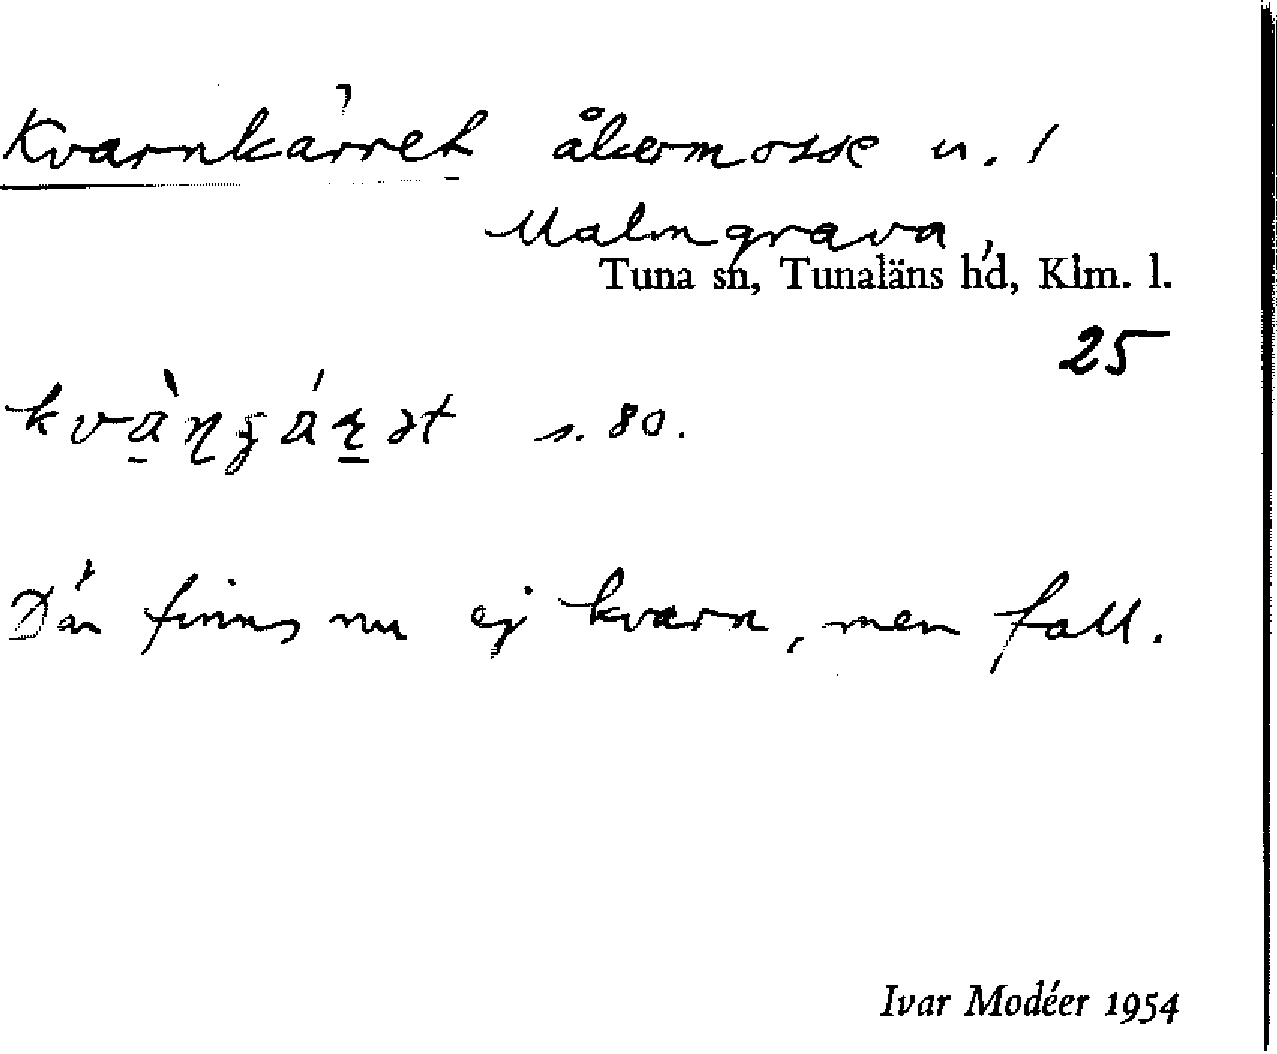 Kvarnkärret åkermosse u. 1
Malmgrava,
Tuna sn, Tunaläns hd, Klm. l.
25
s. 80.
Där finns nu ej kvarn, men fall.
Ivar Modéer 1954